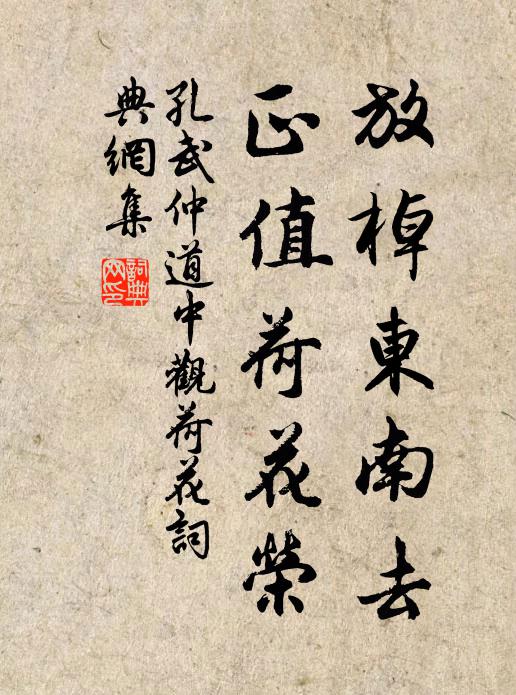 放棹東南去
正值荷花榮
孔武仲道中觀荷花詞
典網集
詞典
网印